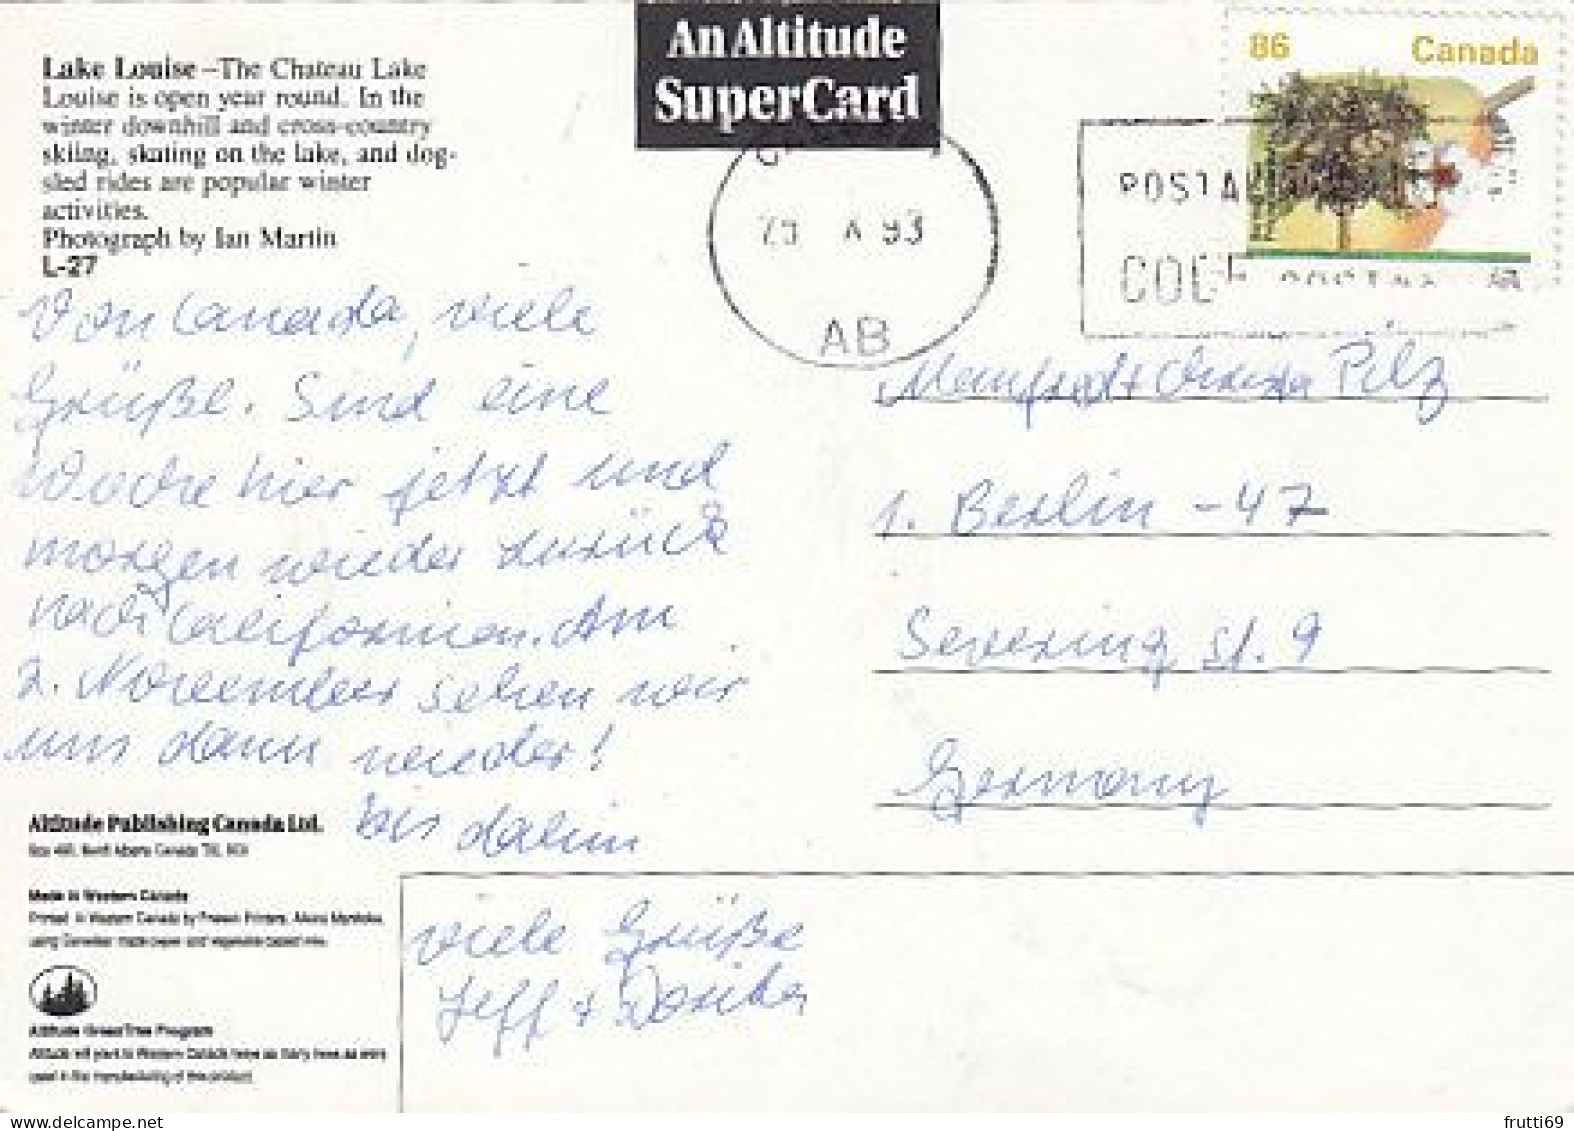 An Altitude
SuperCard
Lake Louise – The Chateau Lake
Louise is open year round. In the
winter downhill and cross-country
skiing, skating on the lake, and dog-
sled rides are popular winter
activities.
Photograph by Ian Martin
L-27
86 Canada
X 93
AB
POSTAL
CODE
Von Canada, viele
Grüße. Sind eine
Woche hier jetzt und
morgen wieder zurück
nach Californien. Am
2. November sehen wir
uns dann wieder!
bis dahin
viele Grüße
Jeff +
Manfred + Pilz
1. Berlin - 47
Severing st. 9
Germany
Altitude Publishing Canada Ltd.
Made in Western Canada
Printed in Western Canada by Friesen Printers, Altona Manitoba,
using Canadian made paper and vegetable based inks.
Altitude GreenTree Program
Altitude will plant in Western Canada twice as many trees as were
used in the manufacturing of this product.
frutti69